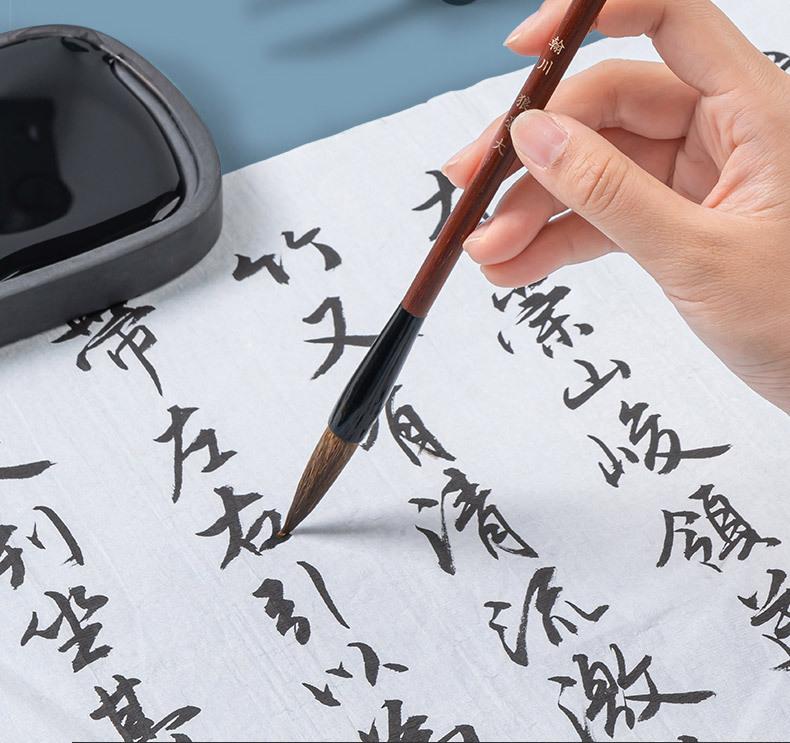 翰川 狼 大
崇山峻領
竹又有清流激
帶左右引以為
列坐其